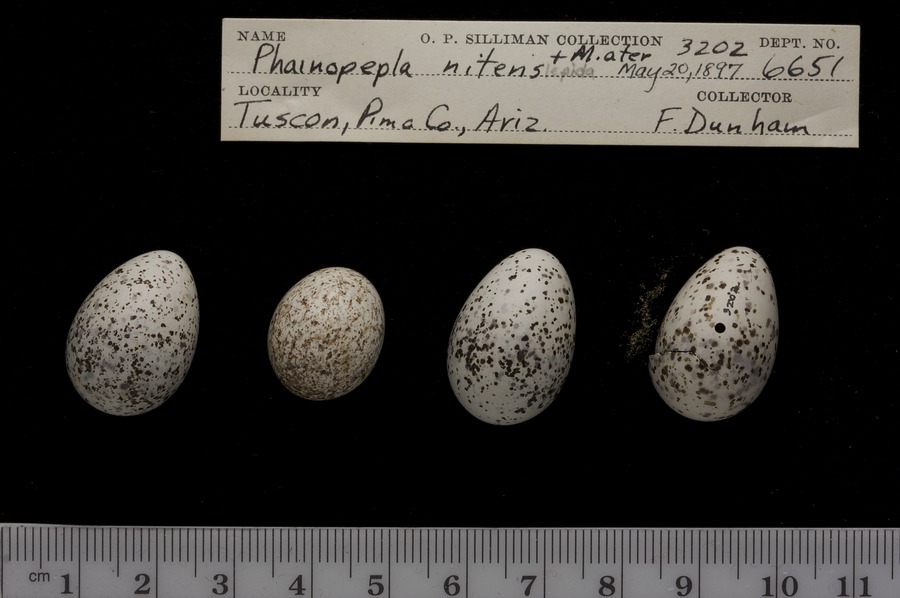 NAME O. P. SILLIMAN COLLECTION 3202 DEPT. NO.
Phainopepla nitens + M. ater May 20, 1897 6651
LOCALITY COLLECTOR
Tuscon, Pima Co., Ariz. F. Dunham
3202
cm 1 2 3 4 5 6 7 8 9 10 11